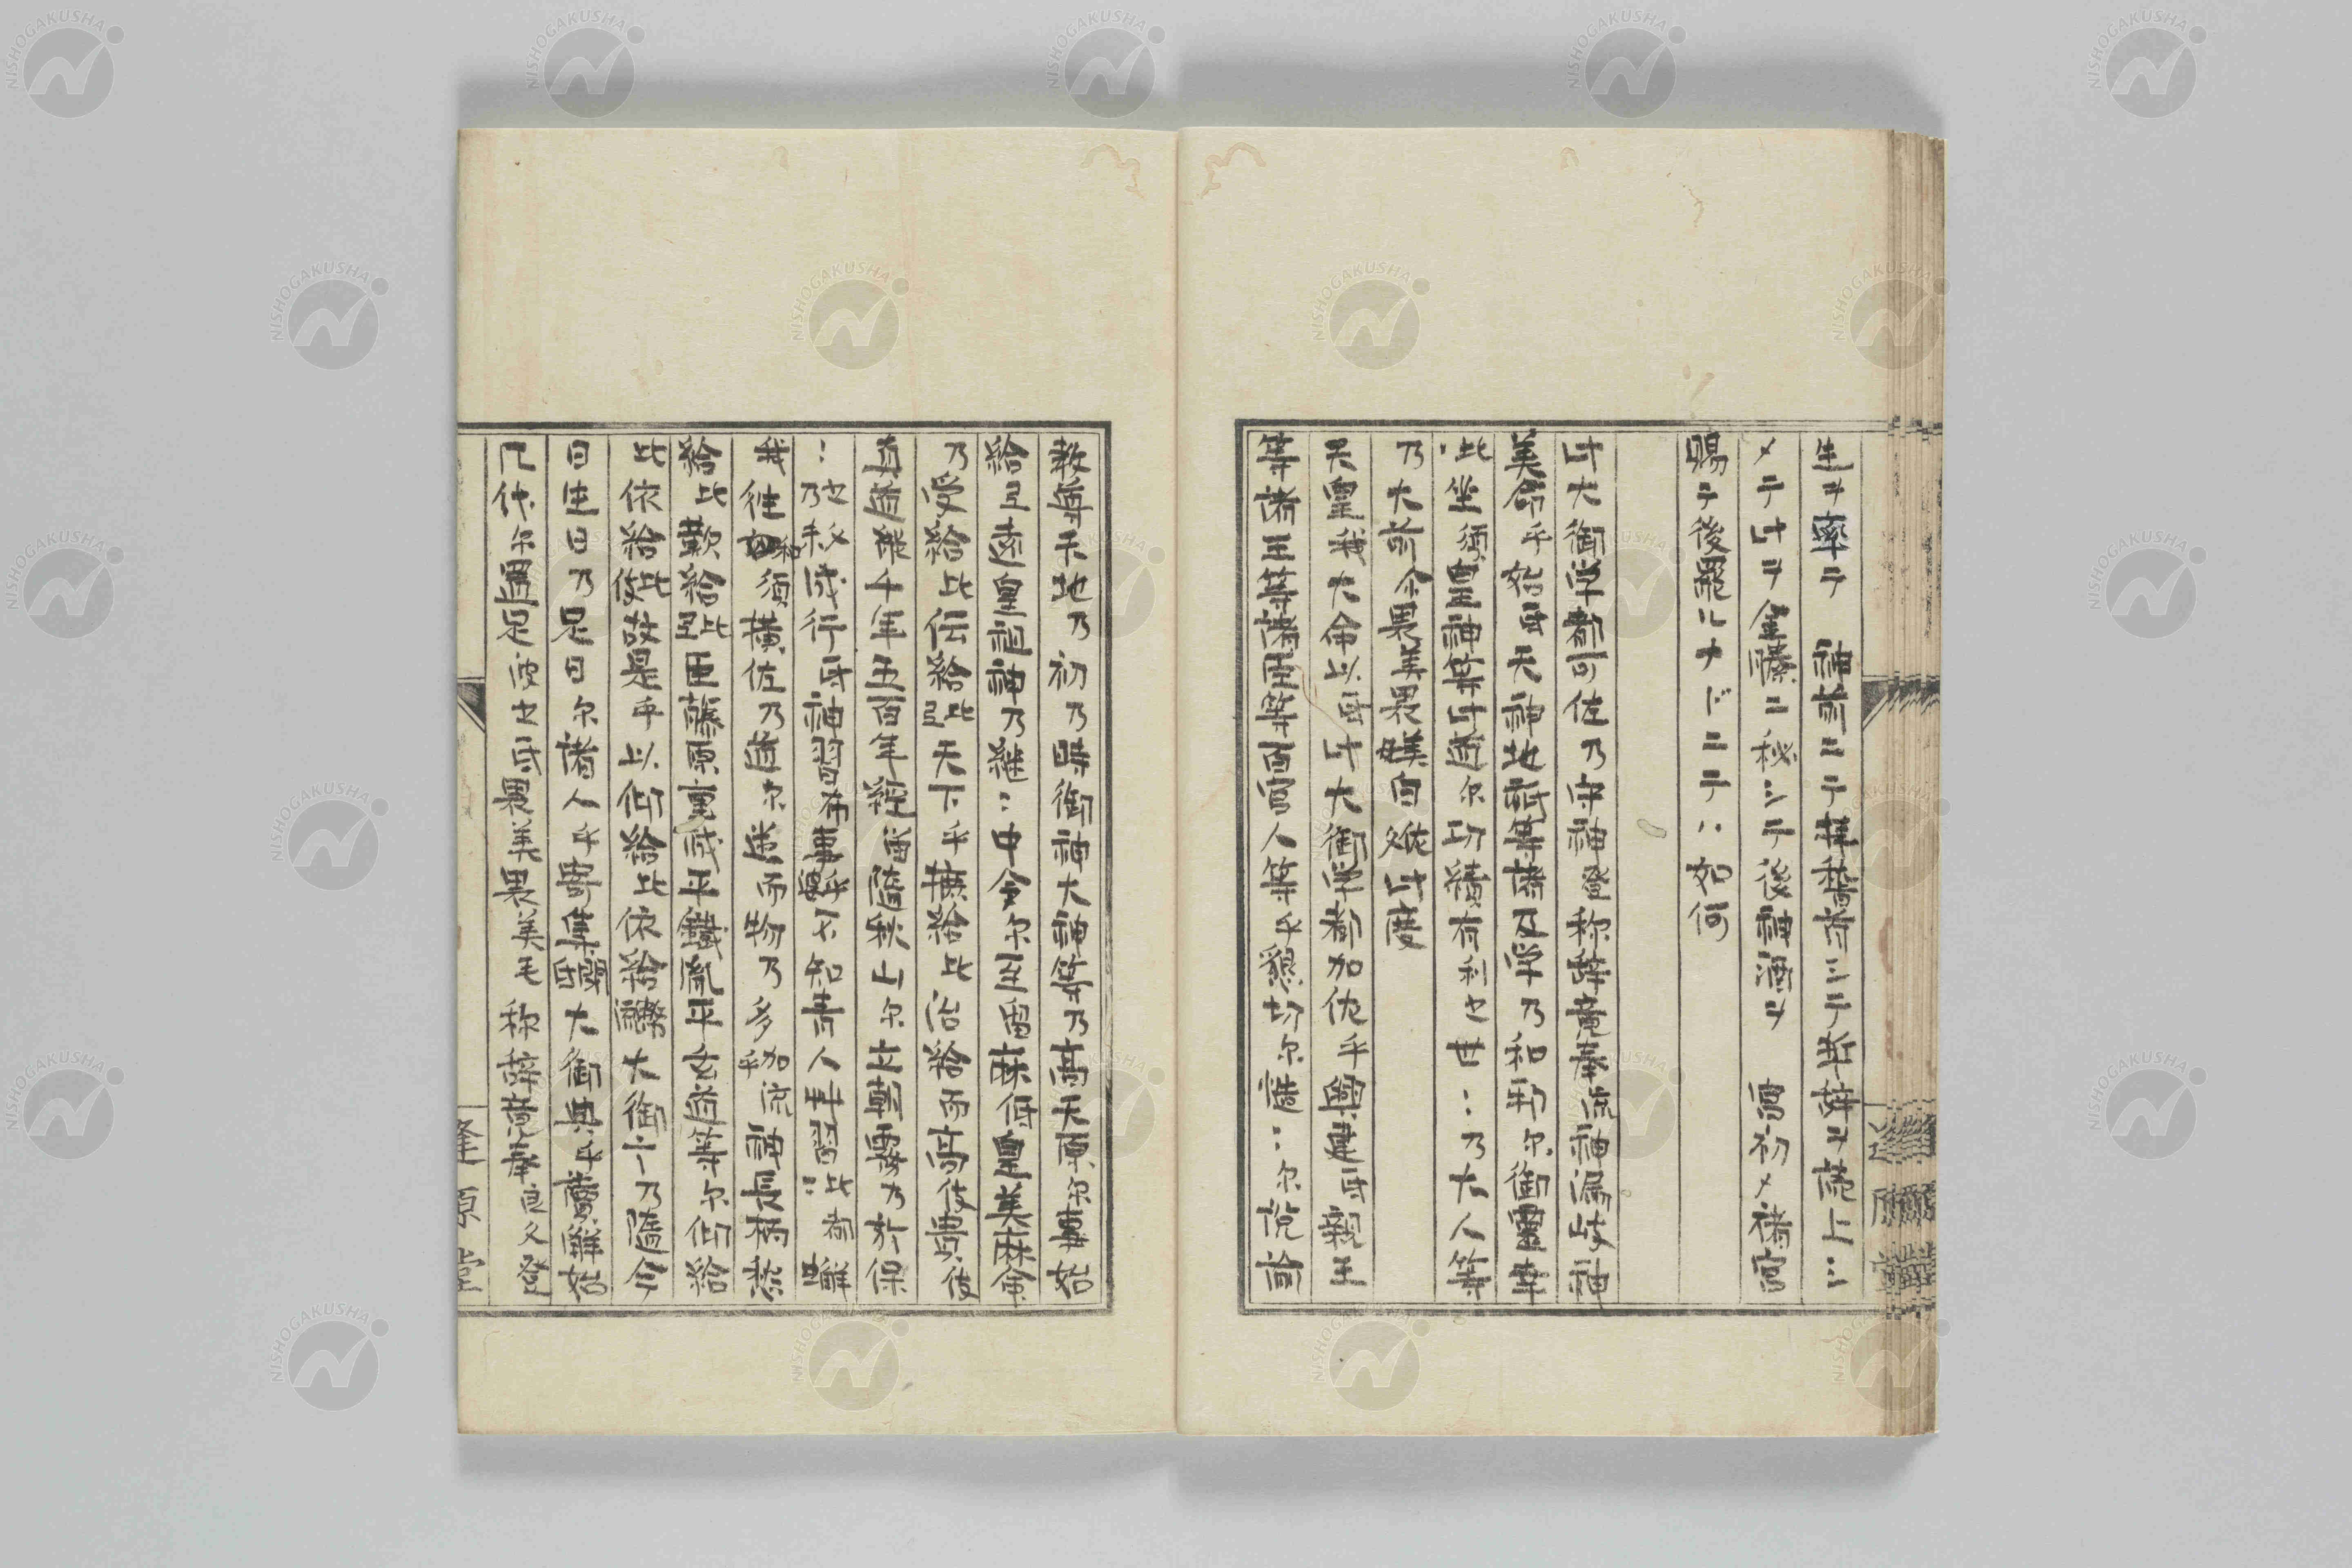 生ヲ率テ 神前ニテ拝稽首シテ斯辞ヲ読上ミ
メテ此ヲ金縢ニ秘シテ後神酒ヲ 寫初メ諸官
賜テ後罷ルナドニテハ如何
此大御学都可佐乃守神登称辞竟奉流神漏岐神
美命乎始氐天神地祇等諸及学乃和利尓御霊幸
比坐須皇神等此道尓功績有利之世〻乃大人等
乃大前尓畏美畏美白久此度
天皇我大命以氐此大御学都加佐乎興建氐親王
等諸王等諸臣等百官人等乎懇切尓慥〻尓説諭
教尊天地乃初乃時御神大神等乃高天原尓事始
給比遠皇祖神乃継〻中今尓至留麻氐皇美麻命
乃受給比伝給比天下乎撫給比治給而高伎貴伎
真道能千年五百年経留随秋山尓立朝霧乃於保
〻乃之移成行氐神習布事乎不知青人草習比都〻
我往和須横佐乃道尓迷而物乃多加流神長柄愁
給比歎給比臣藤原重成平鐵胤平玄道等尓仰給
比依給比故是乎以仰給比依給 大御言乃随今
日生日乃足日尓諸人乎寄集 大御典乎読解始
尓遺足波之氐畏美畏美毛称辞竟奉良久登
逢原堂
NISHOGAKUSHA